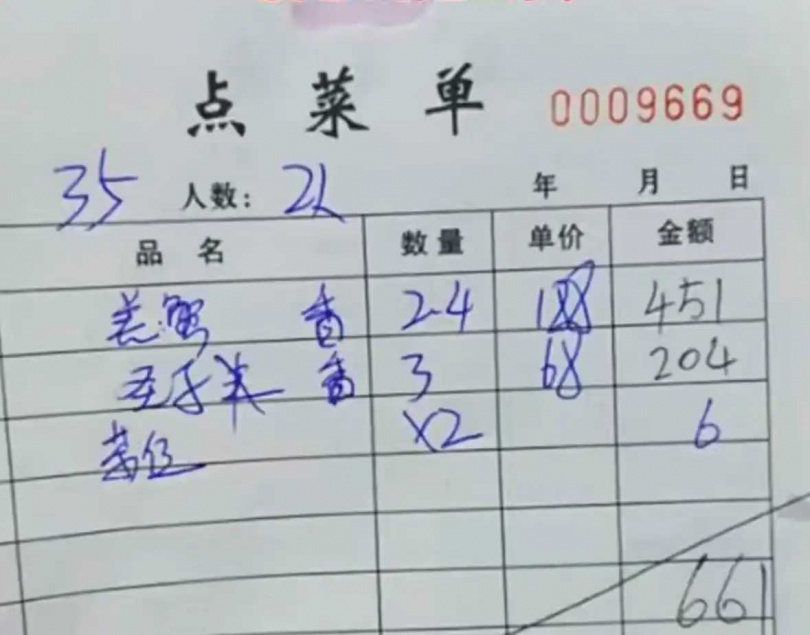 点菜单 0009669
35 人数: 2人 年 月 日
品名 数量 单价 金额
羔蟹 香 2.4 188 451
香 3 68 204
茶位 X2 6
661